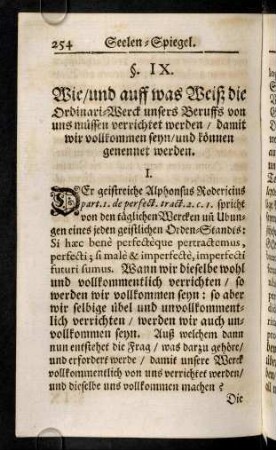 254 Seelen-Spiegel.
§. IX.
Wie/und auff was Weiß die
Ordinari-Werck unsers Beruffs von
uns müssen verrichtet werden / damit
wir vollkommen seyn/und können
genennet werden.
I.
DEr geistreiche Alphonsus Rodericius
part. 1. de perfect. tract. 2. c. 1. spricht
von den täglichen Wercken uñ Ubun-
gen eines jeden geistlichen Orden-Stands:
Si hæc benè perfectèque pertractemus,
perfecti; si malè & imperfectè, imperfecti
futuri sumus. Wann wir dieselbe wohl
und vollkommentlich verrichten / so
werden wir vollkommen seyn: so aber
wir selbige übel und unvollkomment-
lich verrichten / werden wir auch un-
vollkommen seyn. Auß welchem dann
nun entstehet die Frag / was darzu gehöre/
und erfordert werde / damit unsere Werck
vollkommentlich von uns verrichtet werden/
und dieselbe uns vollkommen machen?
Die